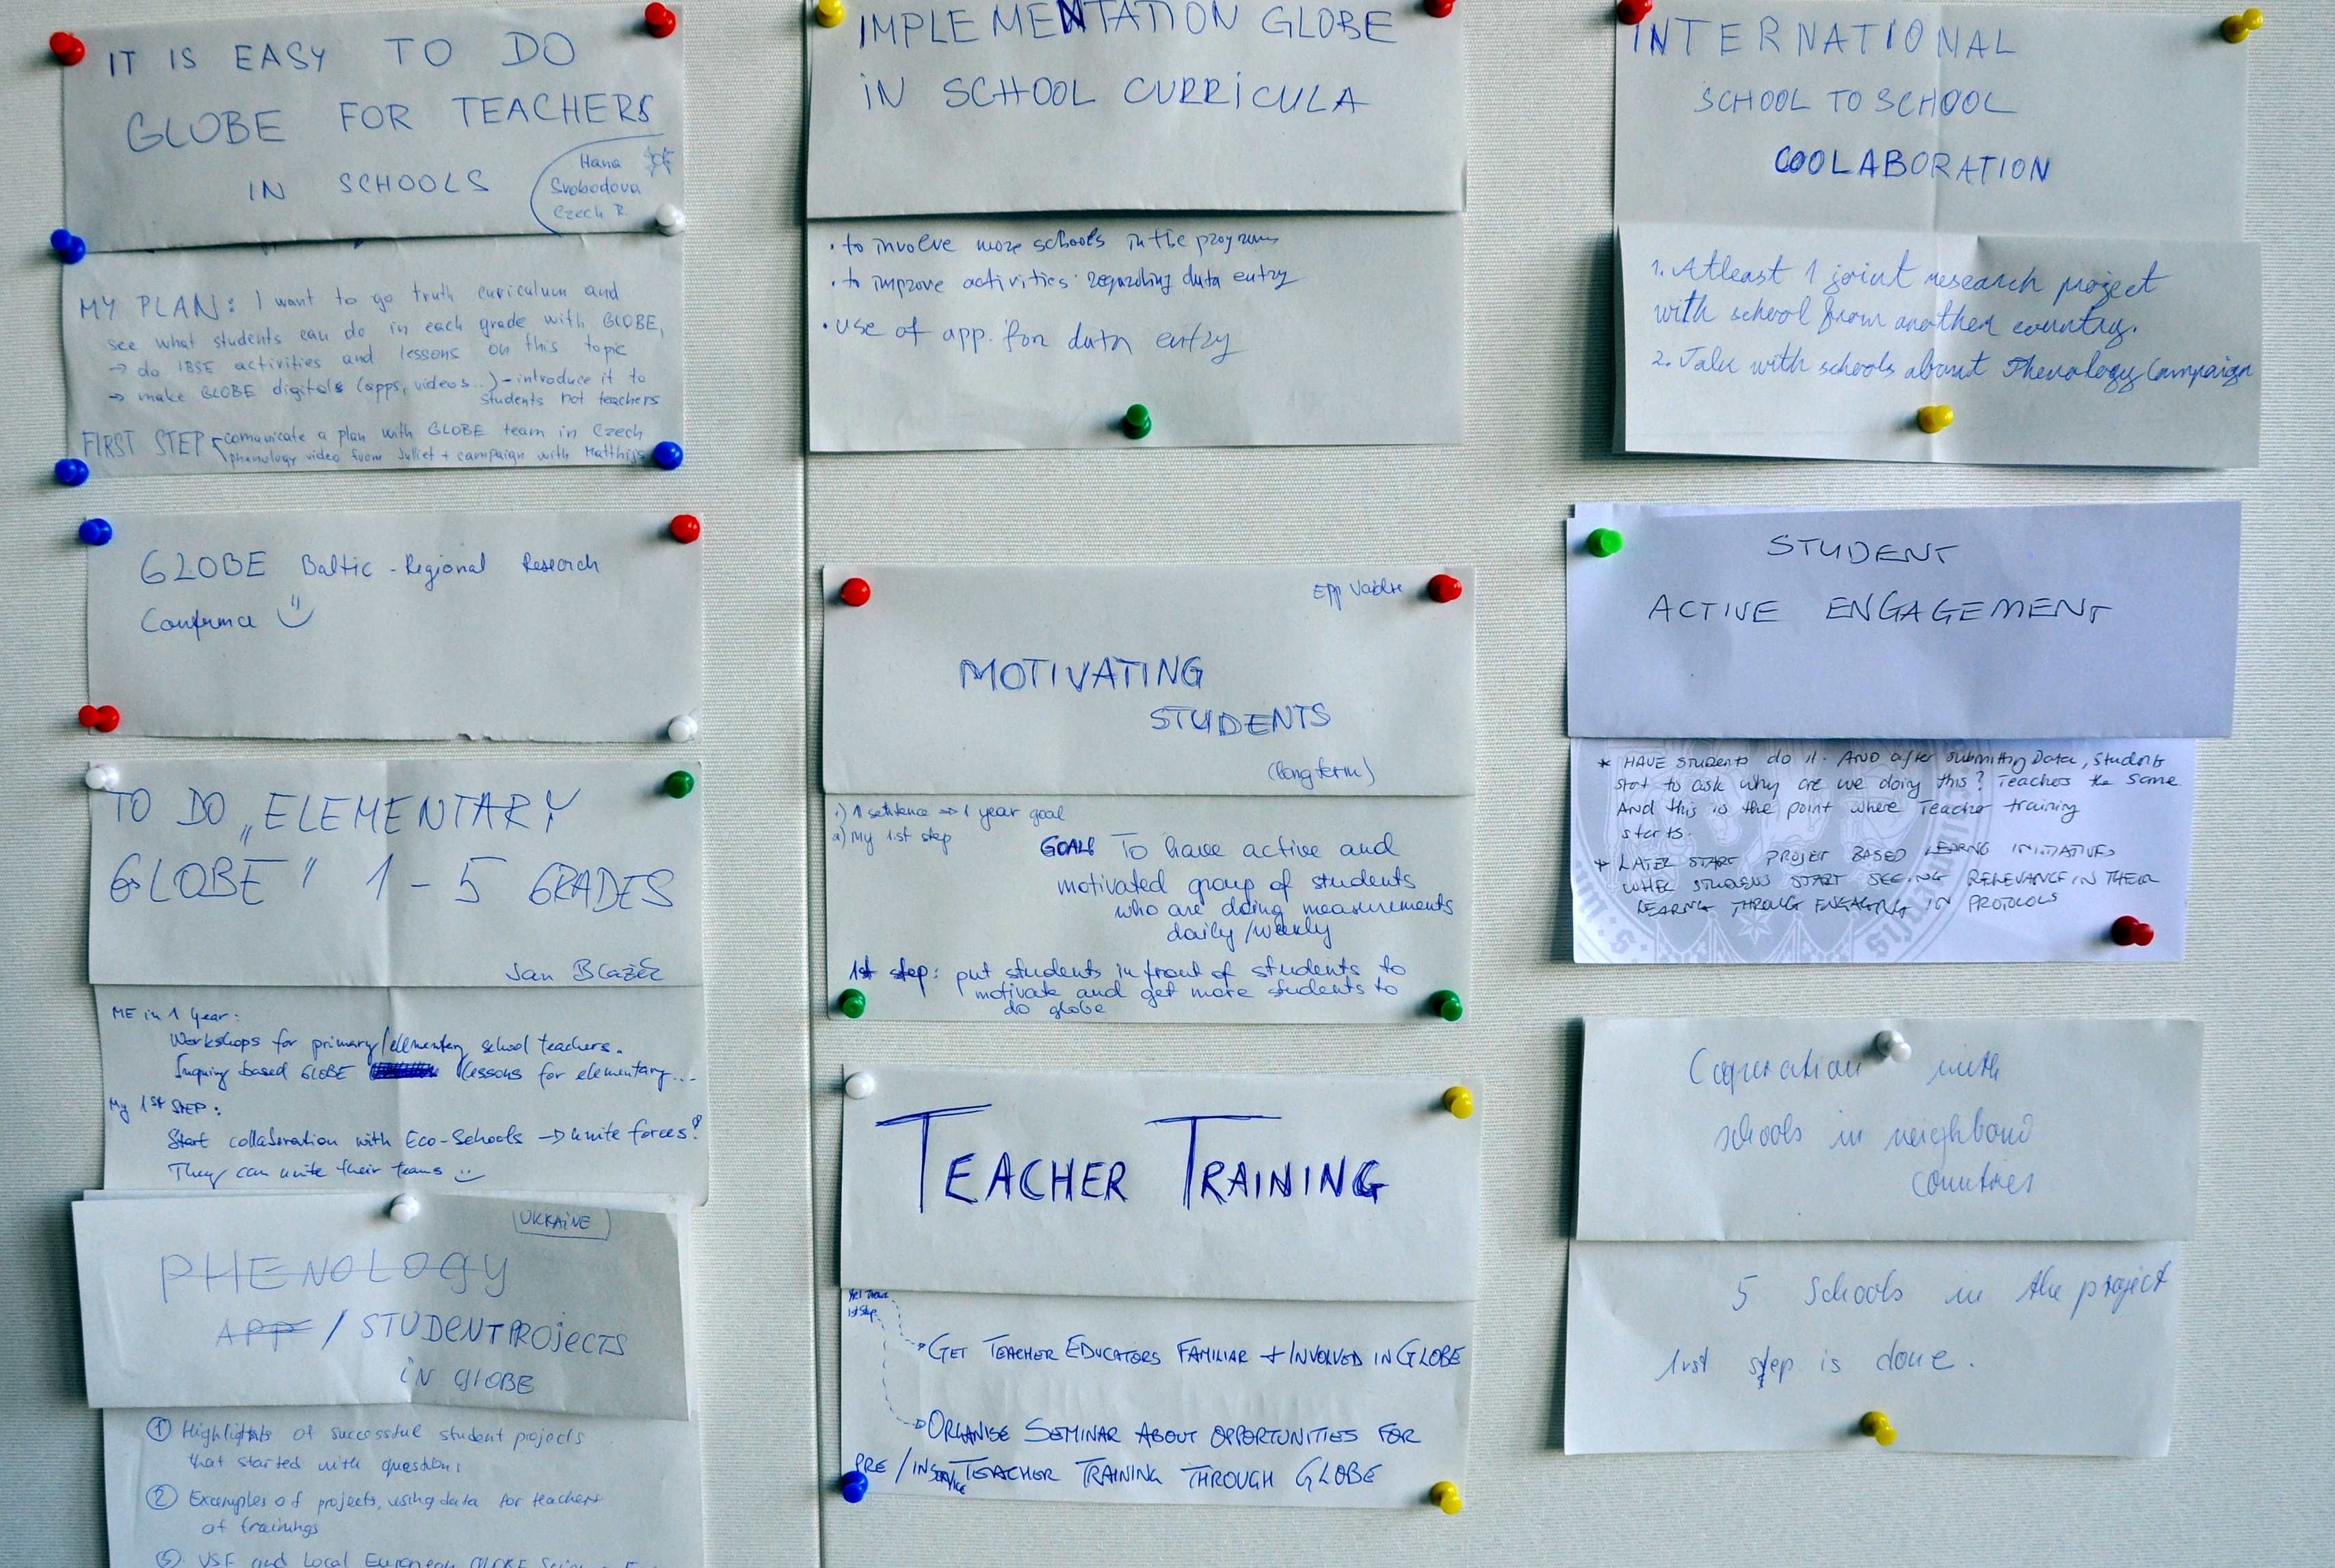 IT IS EASY TO DO
GLOBE FOR TEACHERS
IN SCHOOLS
Hana
Svobodova
Czech R.
MY PLAN: I want to go truth curiculum and
see what students can do in each grade with GLOBE,
→ do IBSE activities and lessons on this topic
→ make GLOBE digitals (apps, videos...) - introduce it to
students not teachers
FIRST STEP comunicate a plan with GLOBE team in Czech
phenology video from Juliet + campaign with Matthijs
GLOBE Baltic - Regional Research
TO DO „ELEMENTARY
GLOBE" 1 - 5 GRADES
Jan Blažek
ME in 1 Year:
Workshops for primary/elementary school teachers.
Inquiry based GLOBE lessons for elementary...
My 1ST STEP:
Start collaboration with Eco-Schools → unite forces?
They can unite their teams
UKRAINE
PHENOLOGY
APP / STUDENT PROJECTS
IN GLOBE
① Highlights of successful student projects
that started with questions
② Examples of projects, using data for teachers
at trainings
and Local European GLOBE
IMPLEMENTATION GLOBE
IN SCHOOL CURRICULA
• to involve more schools in the programs
• to improve activities regarding data entry
• use of app. for data entry
Epp
MOTIVATING
STUDENTS
(long term)
1) 1 sentence → 1 year goal
2) My 1st step
GOAL: To have active and
motivated group of students
who are doing measurements
daily/weekly
1st step: put students in front of students to
motivate and get more students to
do globe
TEACHER TRAINING
1st Step
GET TEACHER EDUCATORS FAMILIAR + INVOLVED IN GLOBE
ORGANISE SEMINAR ABOUT OPPORTUNITIES FOR
PRE / INSERVICE TEACHER TRAINING THROUGH GLOBE
INTERNATIONAL
SCHOOL TO SCHOOL
COOLABORATION
1. Atleast 1 joint research project
with school from another country.
2. Talk with schools about Phenology Campaign
STUDENT
ACTIVE ENGAGEMENT
* HAVE students do it. AND after submitting Data, students
start to ask why are we doing this? Teachers the same
And this is the point where Teacher training
starts.
* LATER START PROJET BASED LEARNG INITIATIVES
WHEN STUDENS START SEEING RELEVANCE IN THEIR
LEARNG THROUG ENGAGING IN PROTOCOLS
Coperation with
schools in neighboud
countries
5 Schools in the project
1rst step is done.